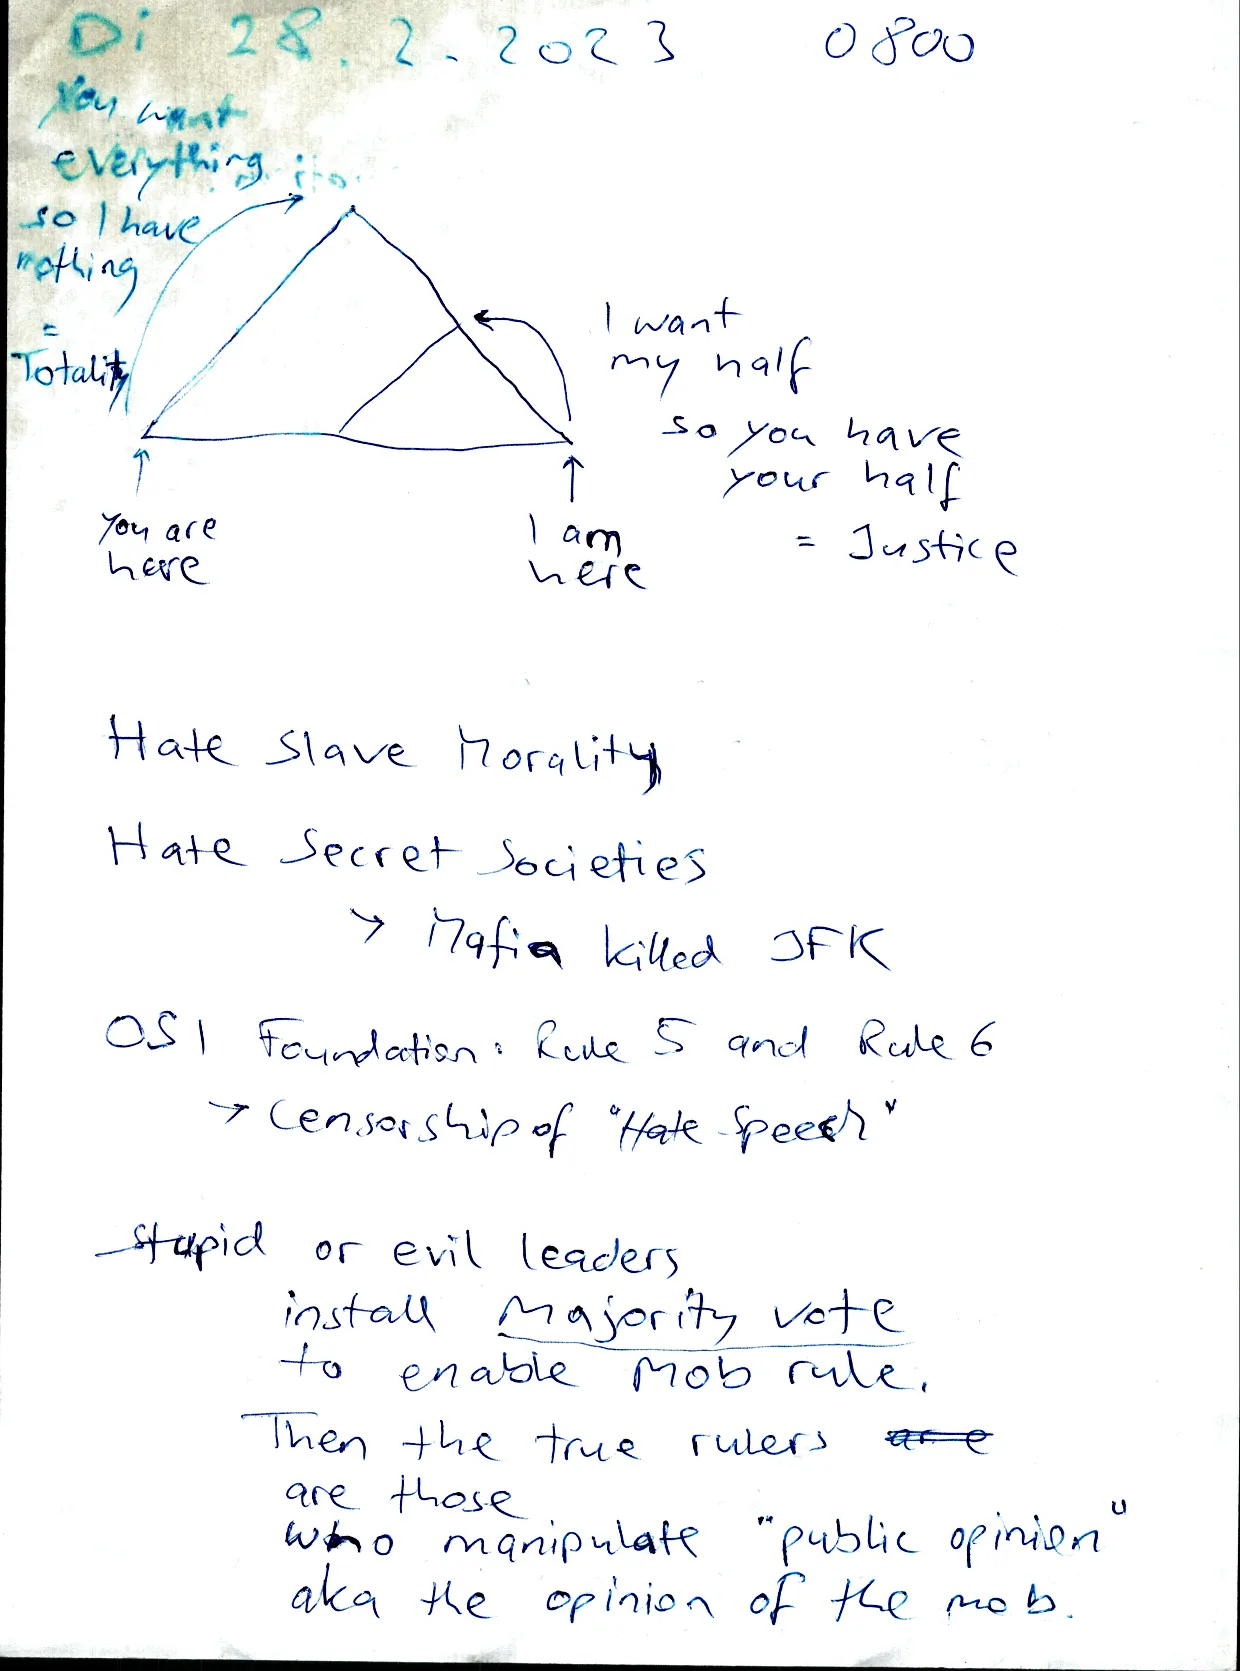 Di 28.2.2023 0800
You want
everything
so I have
nothing
=
Totality
I want
my half
so you have
your half
= Justice
You are
here
I am
here
Hate Slave Morality
Hate Secret Societies
> Mafia killed JFK
OSI Foundation: Rule 5 and Rule 6
-> Censorship of "Hate Speech"
Stupid or evil leaders
install Majority vote
to enable Mob rule.
Then the true rulers
are those
who manipulate "public opinion"
aka the opinion of the mob.